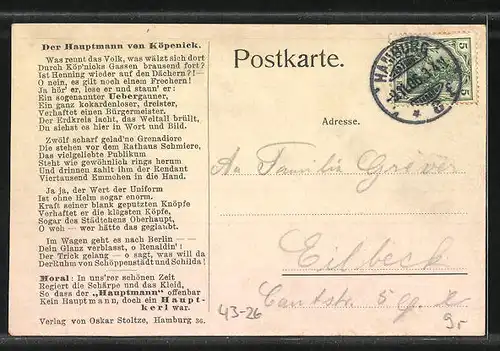 Der Hauptmann von Köpenick.
Was rennt das Volk, was wälzt sich dort
Durch Köp'nicks Gassen brausend fort?
Ist Henning wieder auf den Dächern?! —
O nein, es gilt noch einem Frechern!
Ja hör' er, lese er und staun' er:
Ein sogenannter Uebergauner,
Ein ganz kokardenloser, dreister,
Verhaftet einen Bürgermeister.
Der Erdkreis lacht, das Weltall brüllt,
Du siehst es hier in Wort und Bild.
Zwölf scharf gelad'ne Grenadiere
Die stehen vor dem Rathaus Schmiere,
Das vielgeliebte Publikum
Steht wie gewöhnlich rings herum
Und drinnen zahlt ihm der Rendant
Viertausend Emmchen in die Hand.
Ja ja, der Wert der Uniform
Ist ohne Helm sogar enorm.
Kraft seiner blank geputzten Knöpfe
Verhaftet er die klügsten Köpfe,
Sogar des Städtchens Oberhaupt,
O weh — wer hätte das geglaubt.
Im Wagen geht es nach Berlin — —
Dein Glanz verblasst, o Renaldin'!
Der Trick gelang — o sagt, was will da
Der Ruhm von Schöppenstädt und Schilda!
Moral: In uns'rer schönen Zeit
Regiert die Schärpe und das Kleid,
So dass der „Hauptmann" offenbar
Kein Hauptmann, doch ein Haupt-
kerl war.
Verlag von Oskar Stoltze, Hamburg 36.
Postkarte.
Adresse.
HAMBURG
5
5
An Familie Gröver
Eilbeck
Cantstr. 5
43-26
9,-